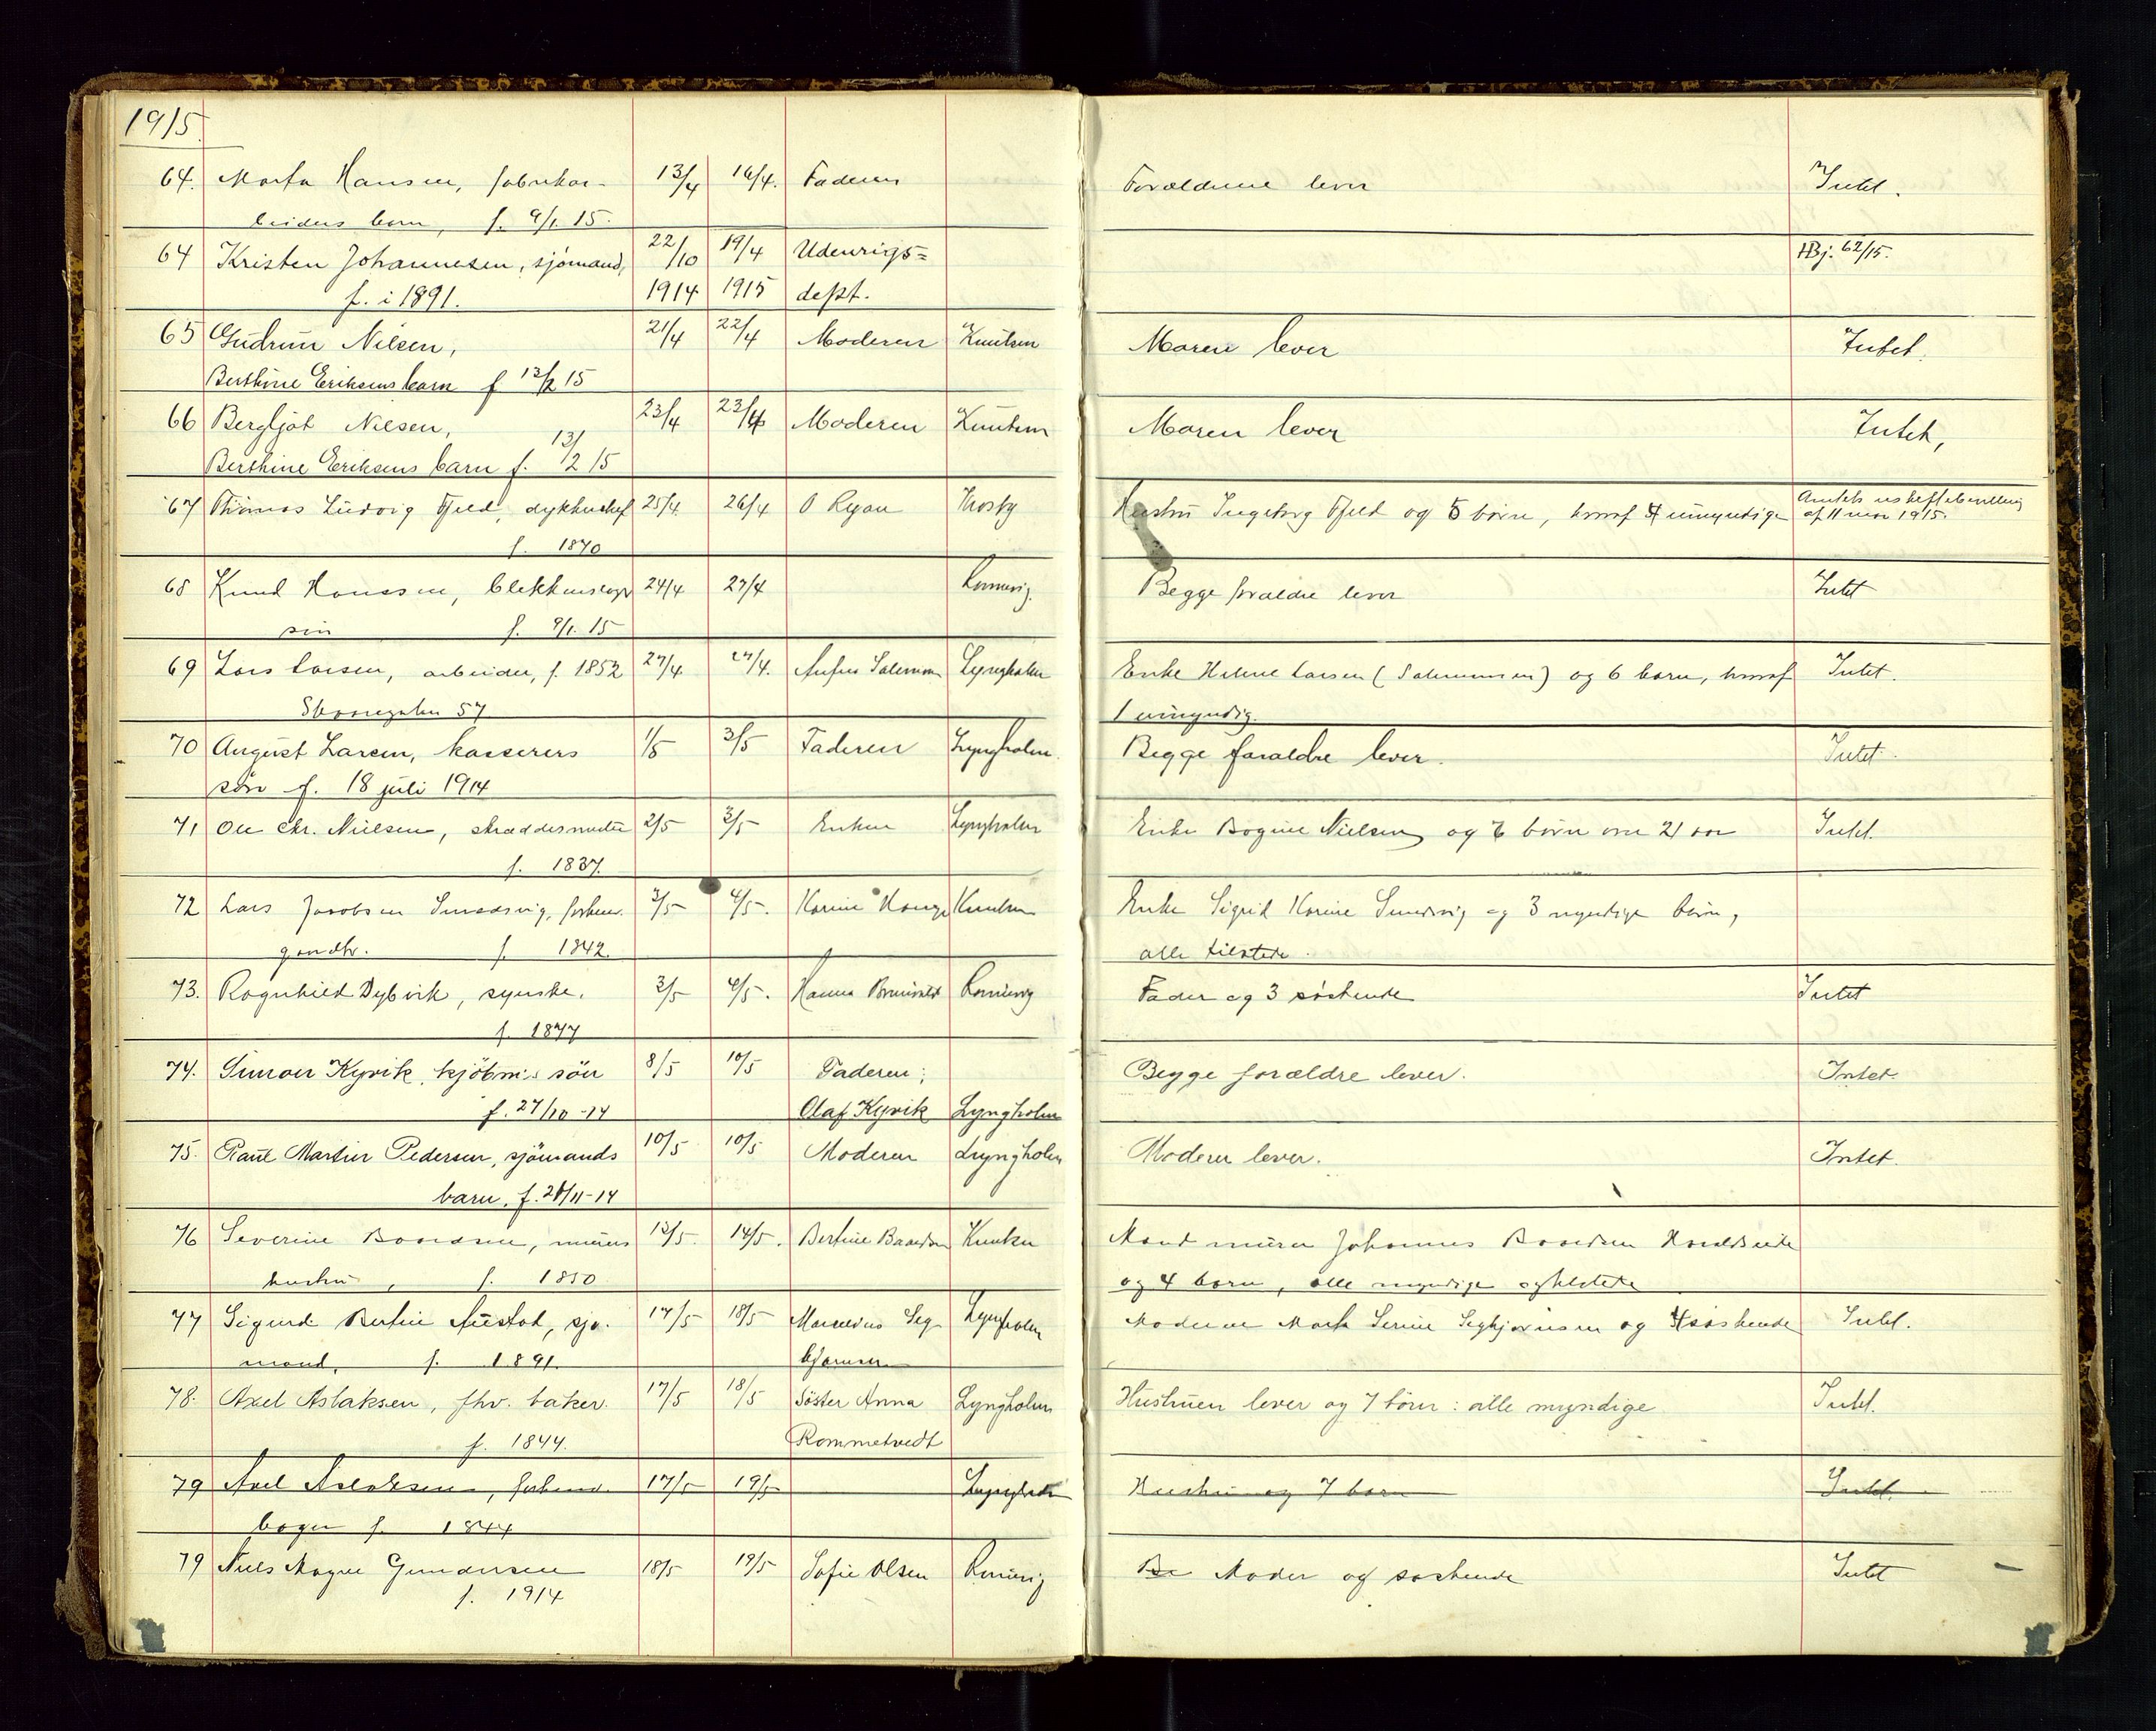 1915.
64. Marta Hansen, fabrikar- 13/4 16/4. Faderen Forældrene lever Intet.
beiders barn, f. 9/1. 15.
64 Kristen Johannesen, sjömand, 22/10 19/4 Udenrigs= HBj. 62/15.
f. i 1891. 1914 1915 dept.
65 Gudrun Nilsen, 21/4 22/4 Moderen Knutsen Moren lever Intet.
Berthine Eriksens barn f 13/2 15
66 Bergljot Nilsen, 23/4 23/4 Moderen Knutsen Moren lever Intet,
Berthine Eriksens barn f. 13/2 15
67 Thomas Ludvig Fjeld, 25/4. 26/4 O Ryan Krosby Hustru Ingeborg Fjeld og 5 börn, hvoraf 4 umyndige Amtets uskiftebevilling
f. 1870 af 11 mai 1915.
68 Knud Hanssen, blikkenslager 24/4 27/4 Rønnevig. Begge forældre lever Intet
søn f. 9/1. 15
69 Lars Larsen, arbeider, f. 1852 27/4 27/4. Salemonsen Lyngholm Enke Helene Larsen (Salemonsen) og 6 barn, hvoraf Intet.
57 1 umyndig.
70 August Larsen, kasserers 1/5 3/5 Faderen Lyngholm. Begge forældre lever. Intet.
sön f. 18 juli 1914
71 Ole Chr. Nielsen, skræddermester 2/5 3/5 Enken Lyngholm Enke Bogine Nielsen og börn over 21 aar Intet.
f. 1837.
72 Lars Jacobsen Smedsvig, forhenv. 3/5 4/5. Karine Hauge Knutsen Enke Sigrid Karine Smedsvig og 3 myndige børn,
gaardbr. f. 1842. alle tilstede.
73. Ragnhild Dybvik, syerske. 3/5 4/5. Hanna Rønnevig Fader og 3 søskende Intet
f. 1877
74. Kyvik, kjöbm's sön 8/5 10/5 Faderen; Begge forældre lever. Intet.
f. 27/10-14 Olaf Kyvik Lyngholm
75. Paul Martin Pedersen, sjömands 10/5 10/5 Moderen Lyngholm Moderen lever. Intet.
barn, f. 28/11-14
76 Severine Baardsen, murers 13/5. 14/5. Bertine Baardsen Knutsen Mand murer Johannes Baardsen
hustru, f. 1850 og 4 barn, alle myndige og tilstede
77 Sigurd Bertin, sjø- 17/5 18/5 Marselius Seg- Lyngholm Moderen Marta Serine Segbjørnsen og 4 søskende Intet.
mand, f. 1891. bjørnsen
78. Axel Aslaksen, fhv. baker. 17/5 18/5 Söster Anna Lyngholm Hustruen lever og 7 börn: alle myndige Intet.
f. 1844. Rommetvedt
79 Axel Aslaksen, forhenv. 17/5 19/5 Lyngholm Hustru og 7 børn Intet.
bager f. 1844
79 Niels Magne Gundersen 18/5 19/5 Sofie Olsen Rønnevig Be Moder og søskende Intet
f. 1914